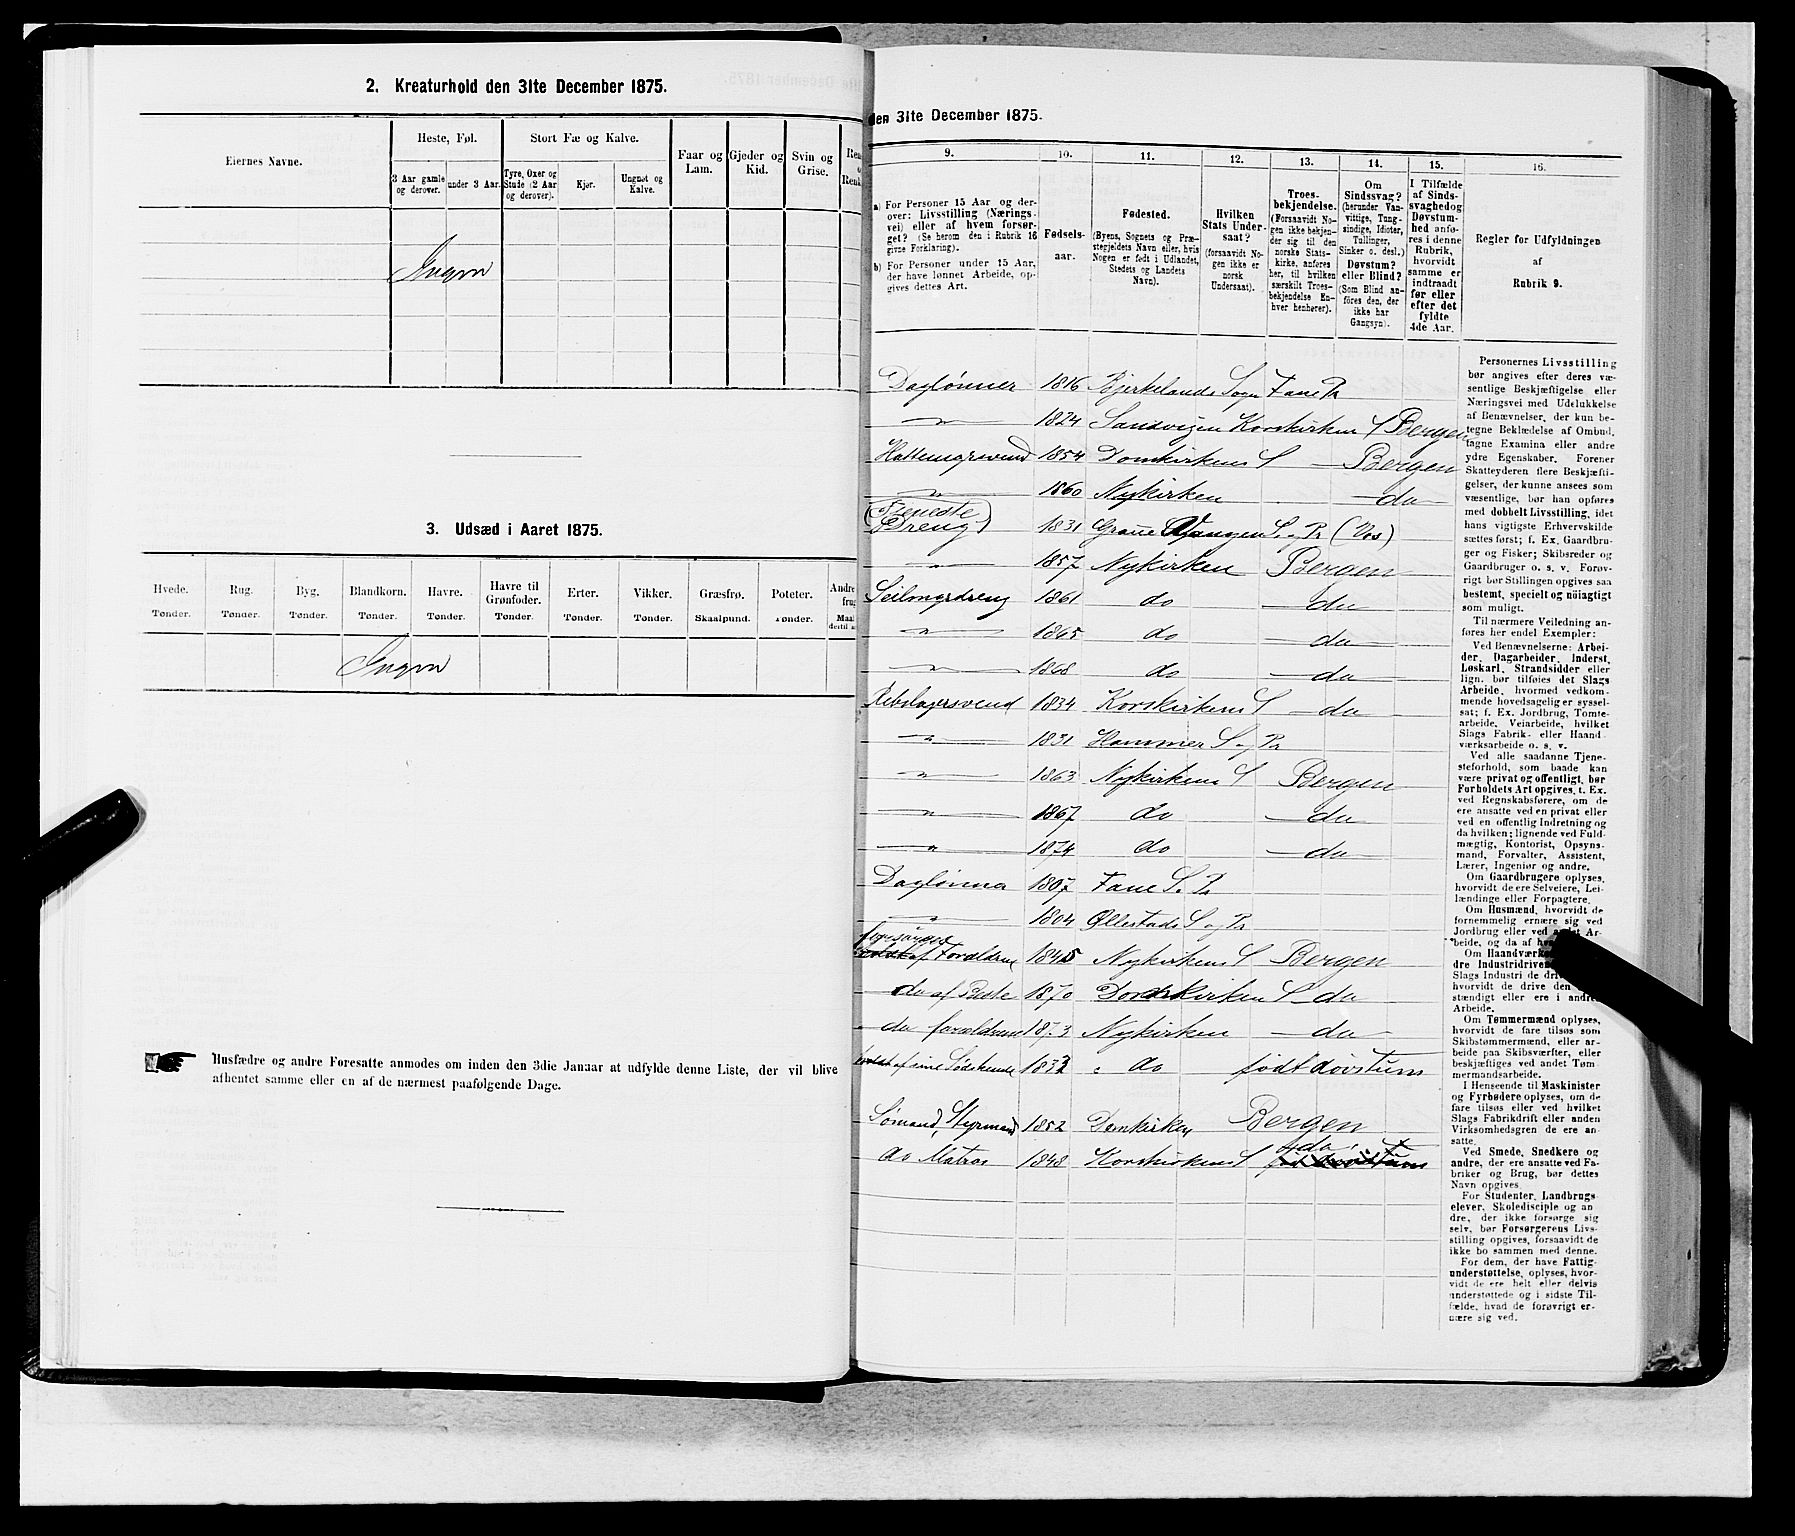 2. Kreaturhold den 31te December 1875.
Eiernes Navne.
Heste, Føl.
Stort Fæ og Kalve.
Faar og Lam.
Gjeder og Kid.
Svin og Grise.
3 Aar gamle og derover.
under 3 Aar.
Tyre, Oxer og Stude (2 Aar og derover).
Kjør.
Ungnøt og Kalve.
Ingen
3. Udsæd i Aaret 1875.
Hvede. Rug. Byg. Blandkorn. Havre. Havre til Grønfoder. Erter. Vikker. Græsfrø. Poteter.
Tønder. Tønder. Tønder. Tønder. Tønder. Tønder. Tønder. Tønder. Skaalpund. Tønder.
Ingen
Husfædre og andre Foresatte anmodes om inden den 3die Januar at udfylde denne Liste, der vil blive
afhentet samme eller en af de nærmest paafølgende Dage.
den 31te December 1875.
9. 10. 11. 12. 13. 14. 15. 16.
a) For Personer 15 Aar og der-
over: Livsstilling (Nærings-
vei) eller af hvem forsør-
get? (Se herom den i Rubrik 16
givne Forklaring).
b) For Personer under 15 Aar,
der have lønnet Arbeide, op-
gives dettes Art.
Fødsels-
aar.
Fødested.
(Byens, Sognets og Præ-
stegjeldets Navn eller, hvis
Nogen er født i Udlandet,
Stedets og Landets
Navn).
Hvilken
Stats Under-
saat?
(forsaavidt No-
gen ikke er
norsk
Undersaat).
Troes-
bekjendelse.
(Forsaavidt No-
gen ikke bekjen-
der sig til den
norske Stats-
kirke, anføres
her, til hvilken
særskilt Troes-
bekjendelse En-
hver henhører).
Om
Sindssvag?
(herunder Van-
vittige, Tung-
sindige, Idioter,
Tullinger,
Sinker o. desl.)
Døvstum?
eller Blind?
(Som Blind an-
føres den, der
ikke har
Gangsyn).
I Tilfælde
af Sinds-
svaghed og
Døvstum-
hed anfø-
res i denne
Rubrik,
hvorvidt
samme er
indtraadt
før eller
efter det
fyldte
4de Aar.
Regler for Udfyldningen
af
Rubrik 9.
Daglønner 1816 Bjerkelands Sogn Fane Pr
" 1824 Sandvigen Korskirken S Bergen
1854 Domkirkens S Bergen
" 1860 Nykirken do
Tjeneste
Dreng 1831 Vangen S. o Pr (Vos)
" 1857 Nykirken Bergen
1861 do do
" 1865 do do
" 1868 do do
Rebslagersvend 1834 Korskirkens S do
" 1831 Hammer S og Pr
" 1863 Nykirkens S Bergen
" 1867 do do
" 1874 do do
Daglønner 1807 Fane S. Pr
" 1804 S og Pr
1845 Nykirkens S Bergen
do af 1870 S do
do forældrene 1873 Nykirken do
af sine Sødskende do født døvstum
Sømand, Styrmand 1852 Domkirken Bergen
do Matros 1848 Korskirkens S do
Personernes Livsstilling
bør angives efter deres væ-
sentlige Beskjæftigelse eller
Næringsvei med Udelukkelse
af Benævnelser, der kun be-
tegne Beklædelse af Ombud,
tagne Examina eller andre
ydre Egenskaber. Forener
Skatteyderen flere Beskjæfti-
gelser, der kunne ansees som
væsentlige, bør han opføres
med dobbelt Livsstilling, idet
hans vigtigste Erhvervskilde
sættes først; f. Ex. Gaardbru-
ger og Fisker; Skibsreder og
Gaardbruger o. s. v. Forøv-
rigt bør Stillingen opgives saa
bestemt, specielt og nöiagtigt
som muligt.
Til nærmere Veiledning an-
føres her endel Exempler:
Ved Benævnelserne: Arbei-
der, Dagarbeider, Inderst,
Løskarl, Strandsidder eller
lign. bør tilføies det Slags
Arbeide, hvormed vedkom-
mende hovedsagelig er syssel-
sat; f. Ex. Jordbrug, Tomte-
arbeide, Veiarbeide, hvilket
Slags Fabrik- eller Haand-
værksarbeide o. s. v.
Ved alle saadanne Tjene-
steforhold, som baade kan
være privat og offentligt, bør
Forholdets Art opgives, t. Ex.
ved Regnskabsførere, om de
ere ansatte ved en privat eller
ved en offentlig Indretning og
da hvilken; lignende ved Fuld-
mægtig, Kontorist, Opsyns-
mand, Forvalter, Assistent,
Lærer, Ingeniør og andre.
Om Gaardbrugere oplyses,
hvorvidt de ere Selveiere, Lei-
lændinge eller Forpagtere.
Om Husmænd, hvorvidt de
fornemmelig ernære sig ved
Jordbrug eller ved andet Ar-
beide, og da af
Om
dre Industridrivende
Slags Industri de
hvorvidt de drive den
stændigt eller ere i andres
Arbeide.
Om Tømmermænd oplyses,
hvorvidt de fare tilsøs som
Skibstømmermænd, eller ar-
beide paa Skibsværfter, eller
beskjæftiges ved andet Tøm-
mermandsarbeide.
I Henseende til Maskinister
og Fyrbødere oplyses, om de
fare tilsøs eller ved hvilket
Slags Fabrikdrift eller anden
Virksomhedsgren de ere an-
satte.
Ved Smede, Snedkere og
andre, der ere ansatte ved Fa-
briker og Brug, bør dettes
Navn opgives.
For Studenter, Landbrugs-
elever, Skoledisciple og an-
dre, der ikke forsørge sig
selv, bør Forsørgerens Livs-
stilling opgives, forsaavidt de
ikke bo sammen med denne.
For dem, der have Fattig-
understøttelse, oplyses, hvor-
vidt de ere helt eller delvis
understøttede og i sidste Til-
fælde, hvad de forøvrigt er-
nære sig ved.